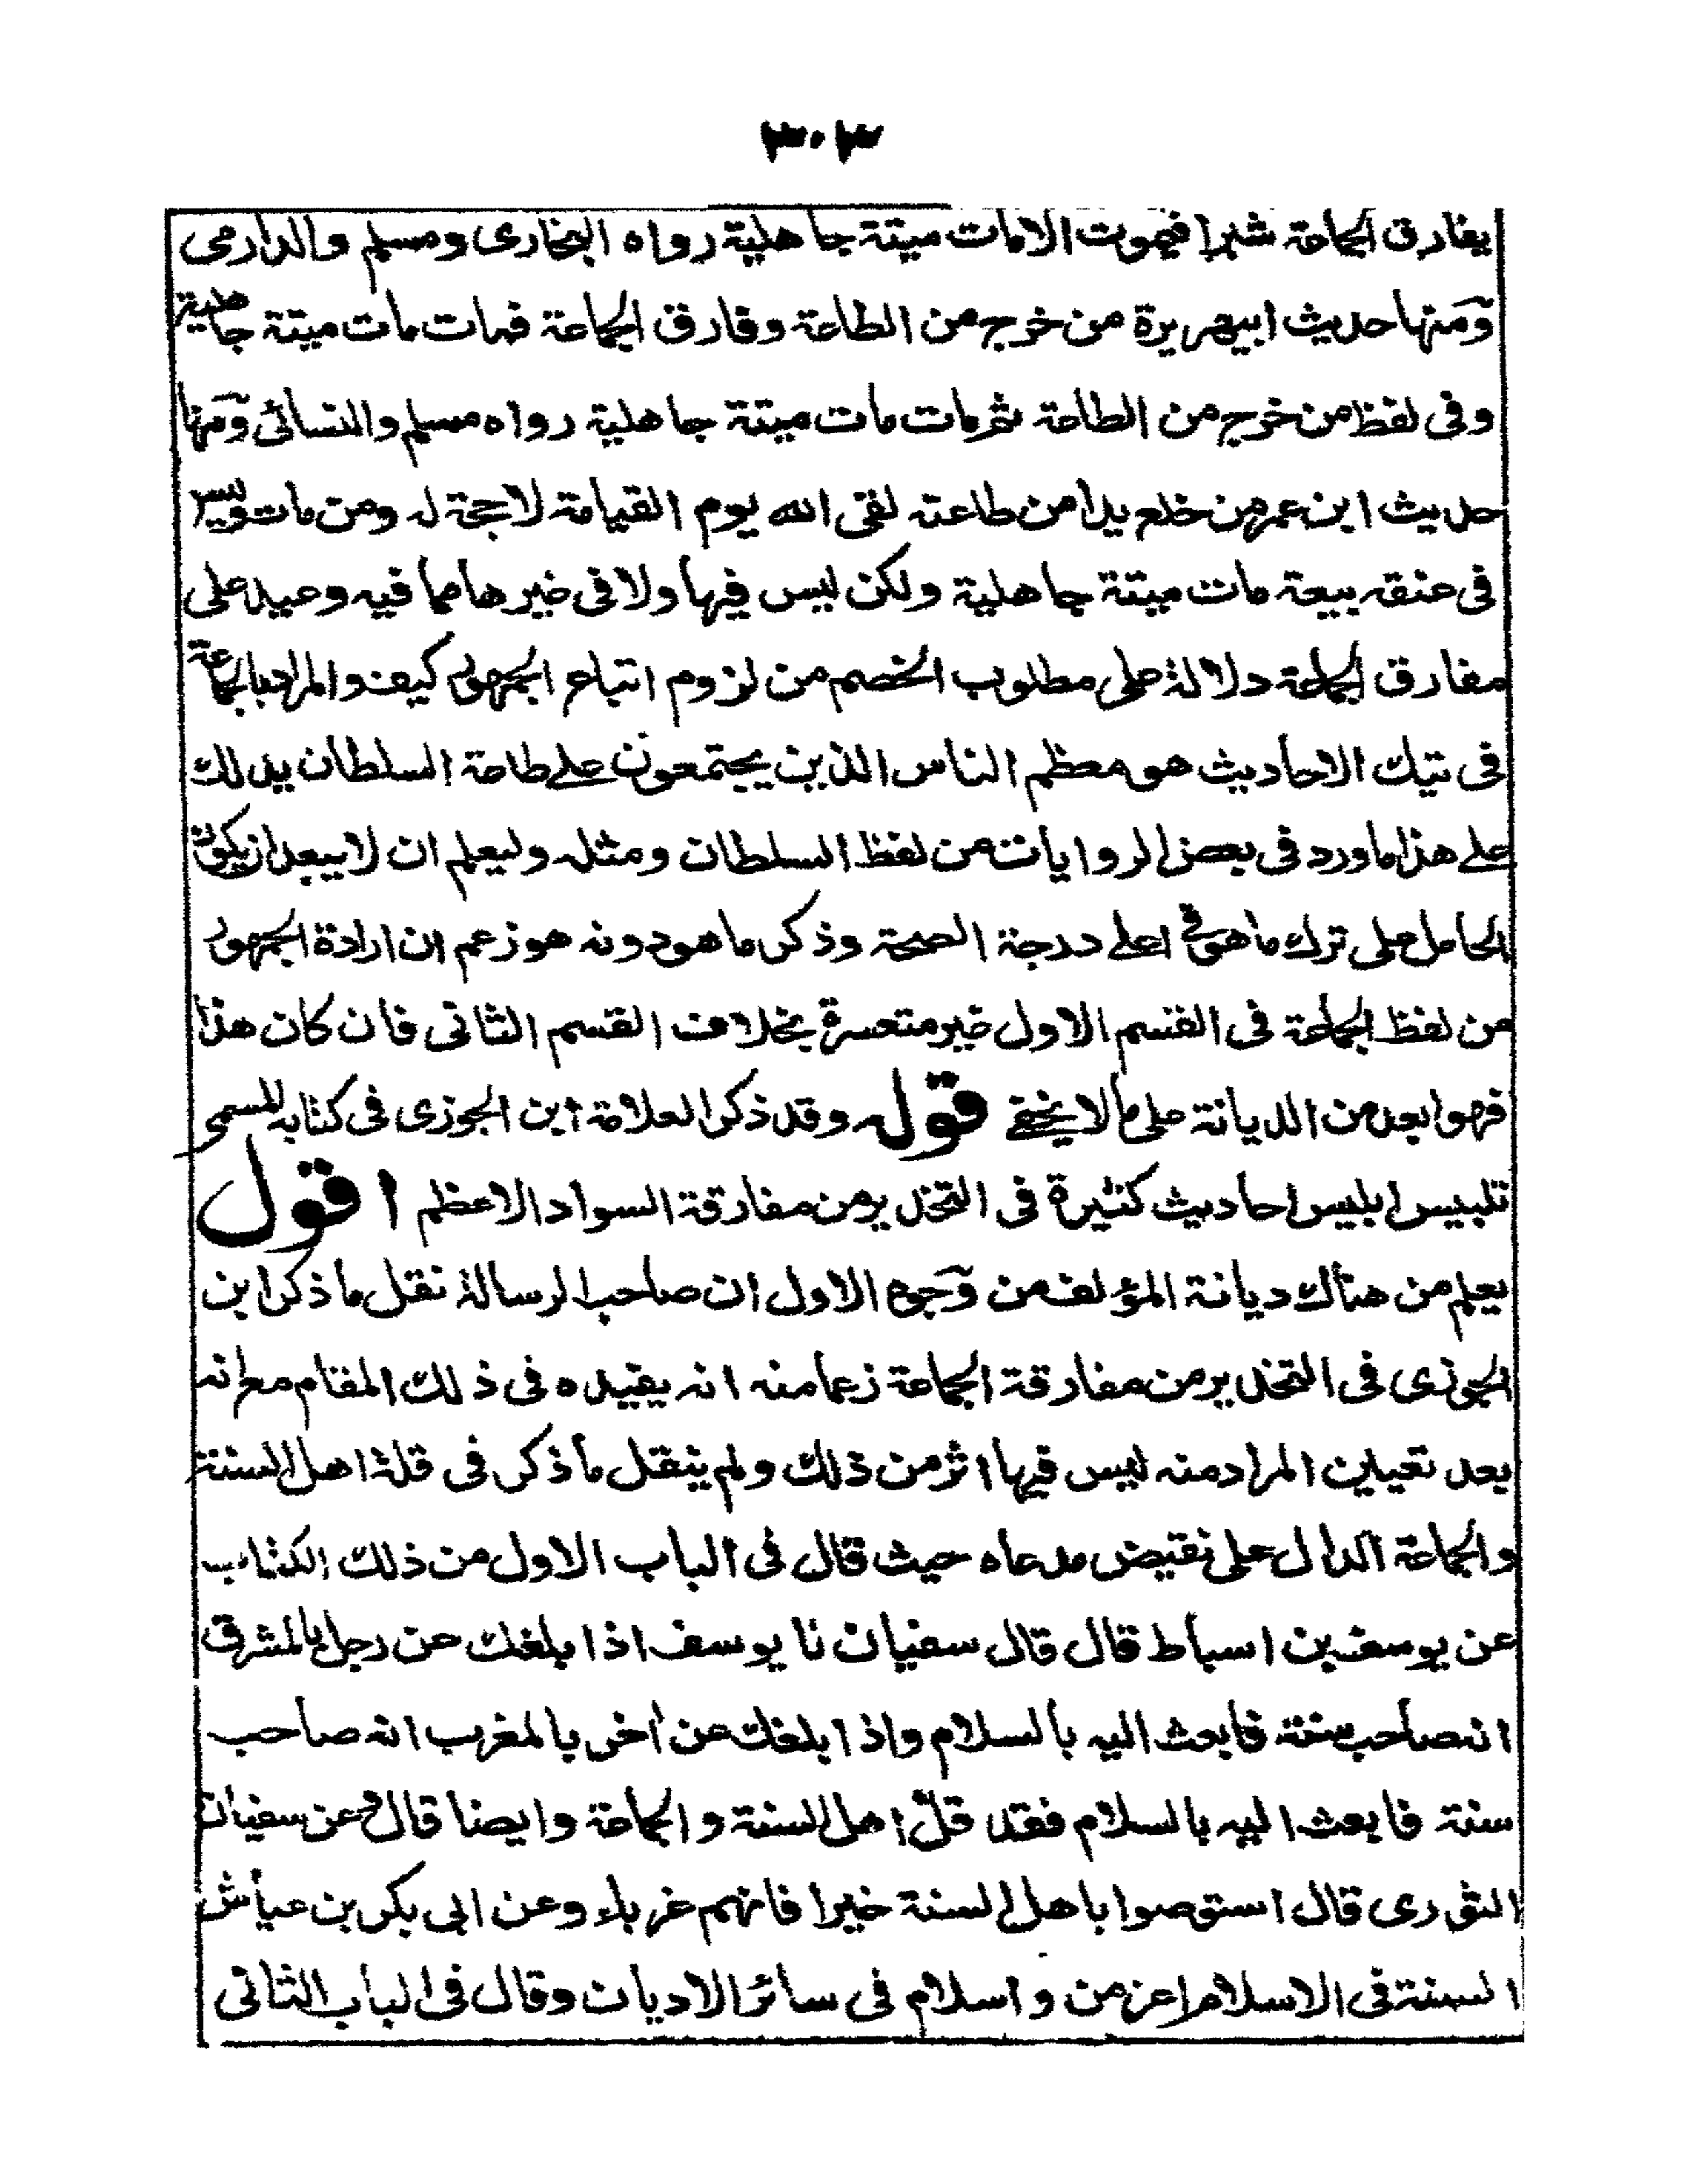 ٣٠٣
يفارق الجماعة شبرا فيموت الامات ميتة جاهلية رواه البخارى ومسلم والدارمى
ومنها حديث ابيهريرة من خرج من الطاعة وفارق الجماعة فمات مات ميتة جاهلية
وفى لفظ من خرج من الطاعة ثم مات مات ميتة جاهلية رواه مسلم والنسائى ومنها
حديث ابن عمر من خلع يدا من طاعته لقى الله يوم القيامة لا حجة له ومن مات وليس
فى عنقه بيعة مات ميتة جاهلية ولكن ليس فيها ولا فى غيرها مما فيه وعيد على
مفارق الجماعة دلالة على مطلوب الخصم من لزوم اتباع الجمهور كيف والمراد بالجماعة
فى تيك الاحاديث هو معظم الناس الذين يجتمعون على طاعة السلطان يدلك
على هذا ما ورد فى بعض الروايات من لفظ السلطان ومثله وليعلم ان لا يبعد ان يكون
الحامل على ترك ما هو فى اعلى درجة الصحة وذكر ما هو دونه هو زعم ان ارادة الجمهور
من لفظ الجماعة فى القسم الاول غير متعسرة بخلاف القسم الثانى فان كان هذا
فهو ابعد من الديانة على ما لا يخفى قوله وقد ذكر العلامة ابن الجوزى فى كتابه المسمى
تلبيس ابليس احاديث كثيرة فى التحذير من مفارقة السواد الاعظم اقول
يعلم من هناك ديانة المؤلف من وجوه الاول ان صاحب الرسالة نقل ما ذكر ابن
الجوزى فى التحذير من مفارقة الجماعة زعما منه انه يفيده فى ذلك المقام مع انه
بعد تعيين المراد منه ليس فيها اثر من ذلك ولم ينقل ما ذكر فى قلة اهل السنة
والجماعة الدال على نقيض مدعاه حيث قال فى الباب الاول من ذلك الكتاب
عن يوسف بن اسباط قال قال سفيان نا يوسف اذا بلغك عن رجل بالمشرق
انه صاحب سنة فابعث اليه بالسلام واذا بلغك عن اخر بالمغرب انه صاحب
سنة فابعث اليه بالسلام فقد قل اهل السنة والجماعة وايضا قال وعن سفيان
الثورى قال استوصوا باهل السنة خيرا فانهم غرباء وعن ابى بكر بن عياش
السنة فى الاسلام اعز من واسلام فى سائر الاديان وقال فى الباب الثانى